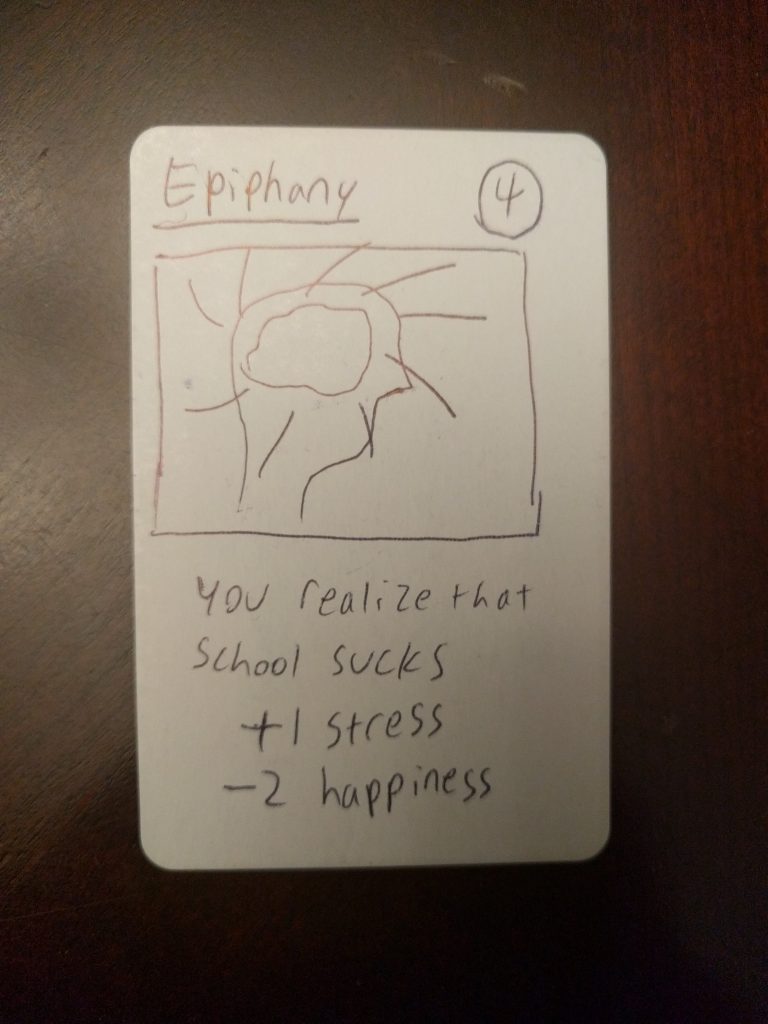 Epiphany
4
You realize that
school sucks
+1 stress
-2 happiness